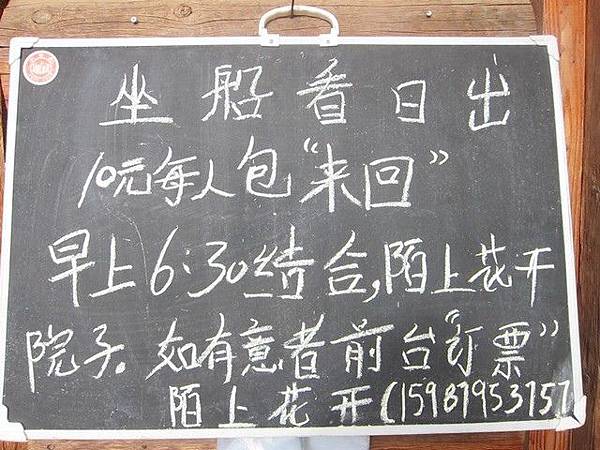 坐船看日出
10元每人包“来回”
早上6:30结合,陌上花开
院子。如有意者前台“订票”
陌上花开(15987953757